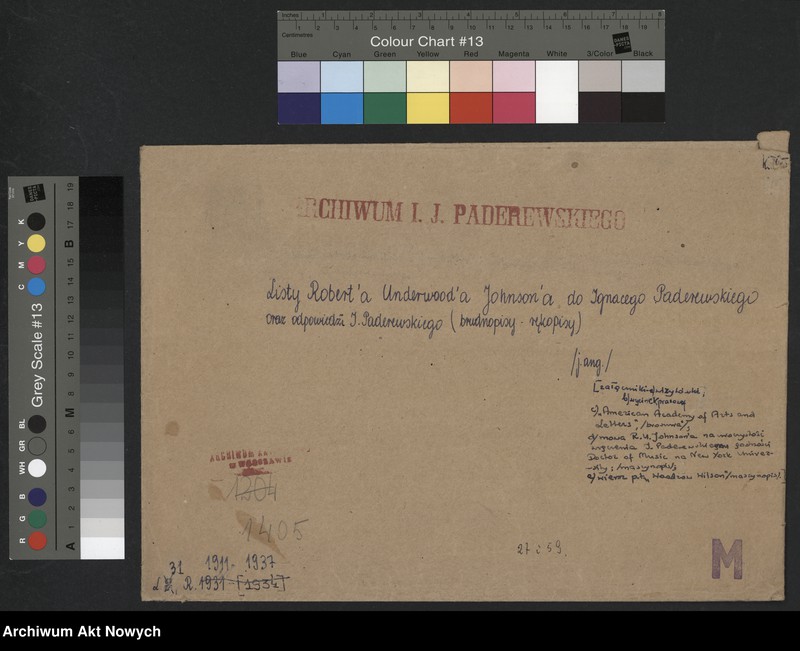 Inches
Centimetres
Colour Chart #13
Blue Cyan Green Yellow Red Magenta White 3/Color Black
Grey Scale #13
R G B WH GR BL C M Y K
A 1 2 3 4 5 6 M 8 9 10 11 12 13 14 15 B 17 18 19
ARCHIWUM I. J. PADEREWSKIEGO
Listy Robert'a Underwood'a Johnson'a do Ignacego Paderewskiego
oraz odpowiedzi I. Paderewskiego (brudnopisy - rękopisy)
/j. ang./
[załączniki: a/ wizytówki;
b/ wycinki prasowe
c/ "American Academy of Arts and
Letters", /broszura/;
d/ mowa R. U. Johnson'a na uroczystość
wręczenia I. Paderewskiemu godności
Doctor of Music na New York Univer-
-sity; /maszynopis/;
e/ wiersz pt. "Woodrow Wilson" /maszynopis/.]
ARCHIWUM AKT
W WARSZAWIE
1204
1405
27 i 59.
M
31 1911 - 1937
R. 1931 - [1934]
Archiwum Akt Nowych